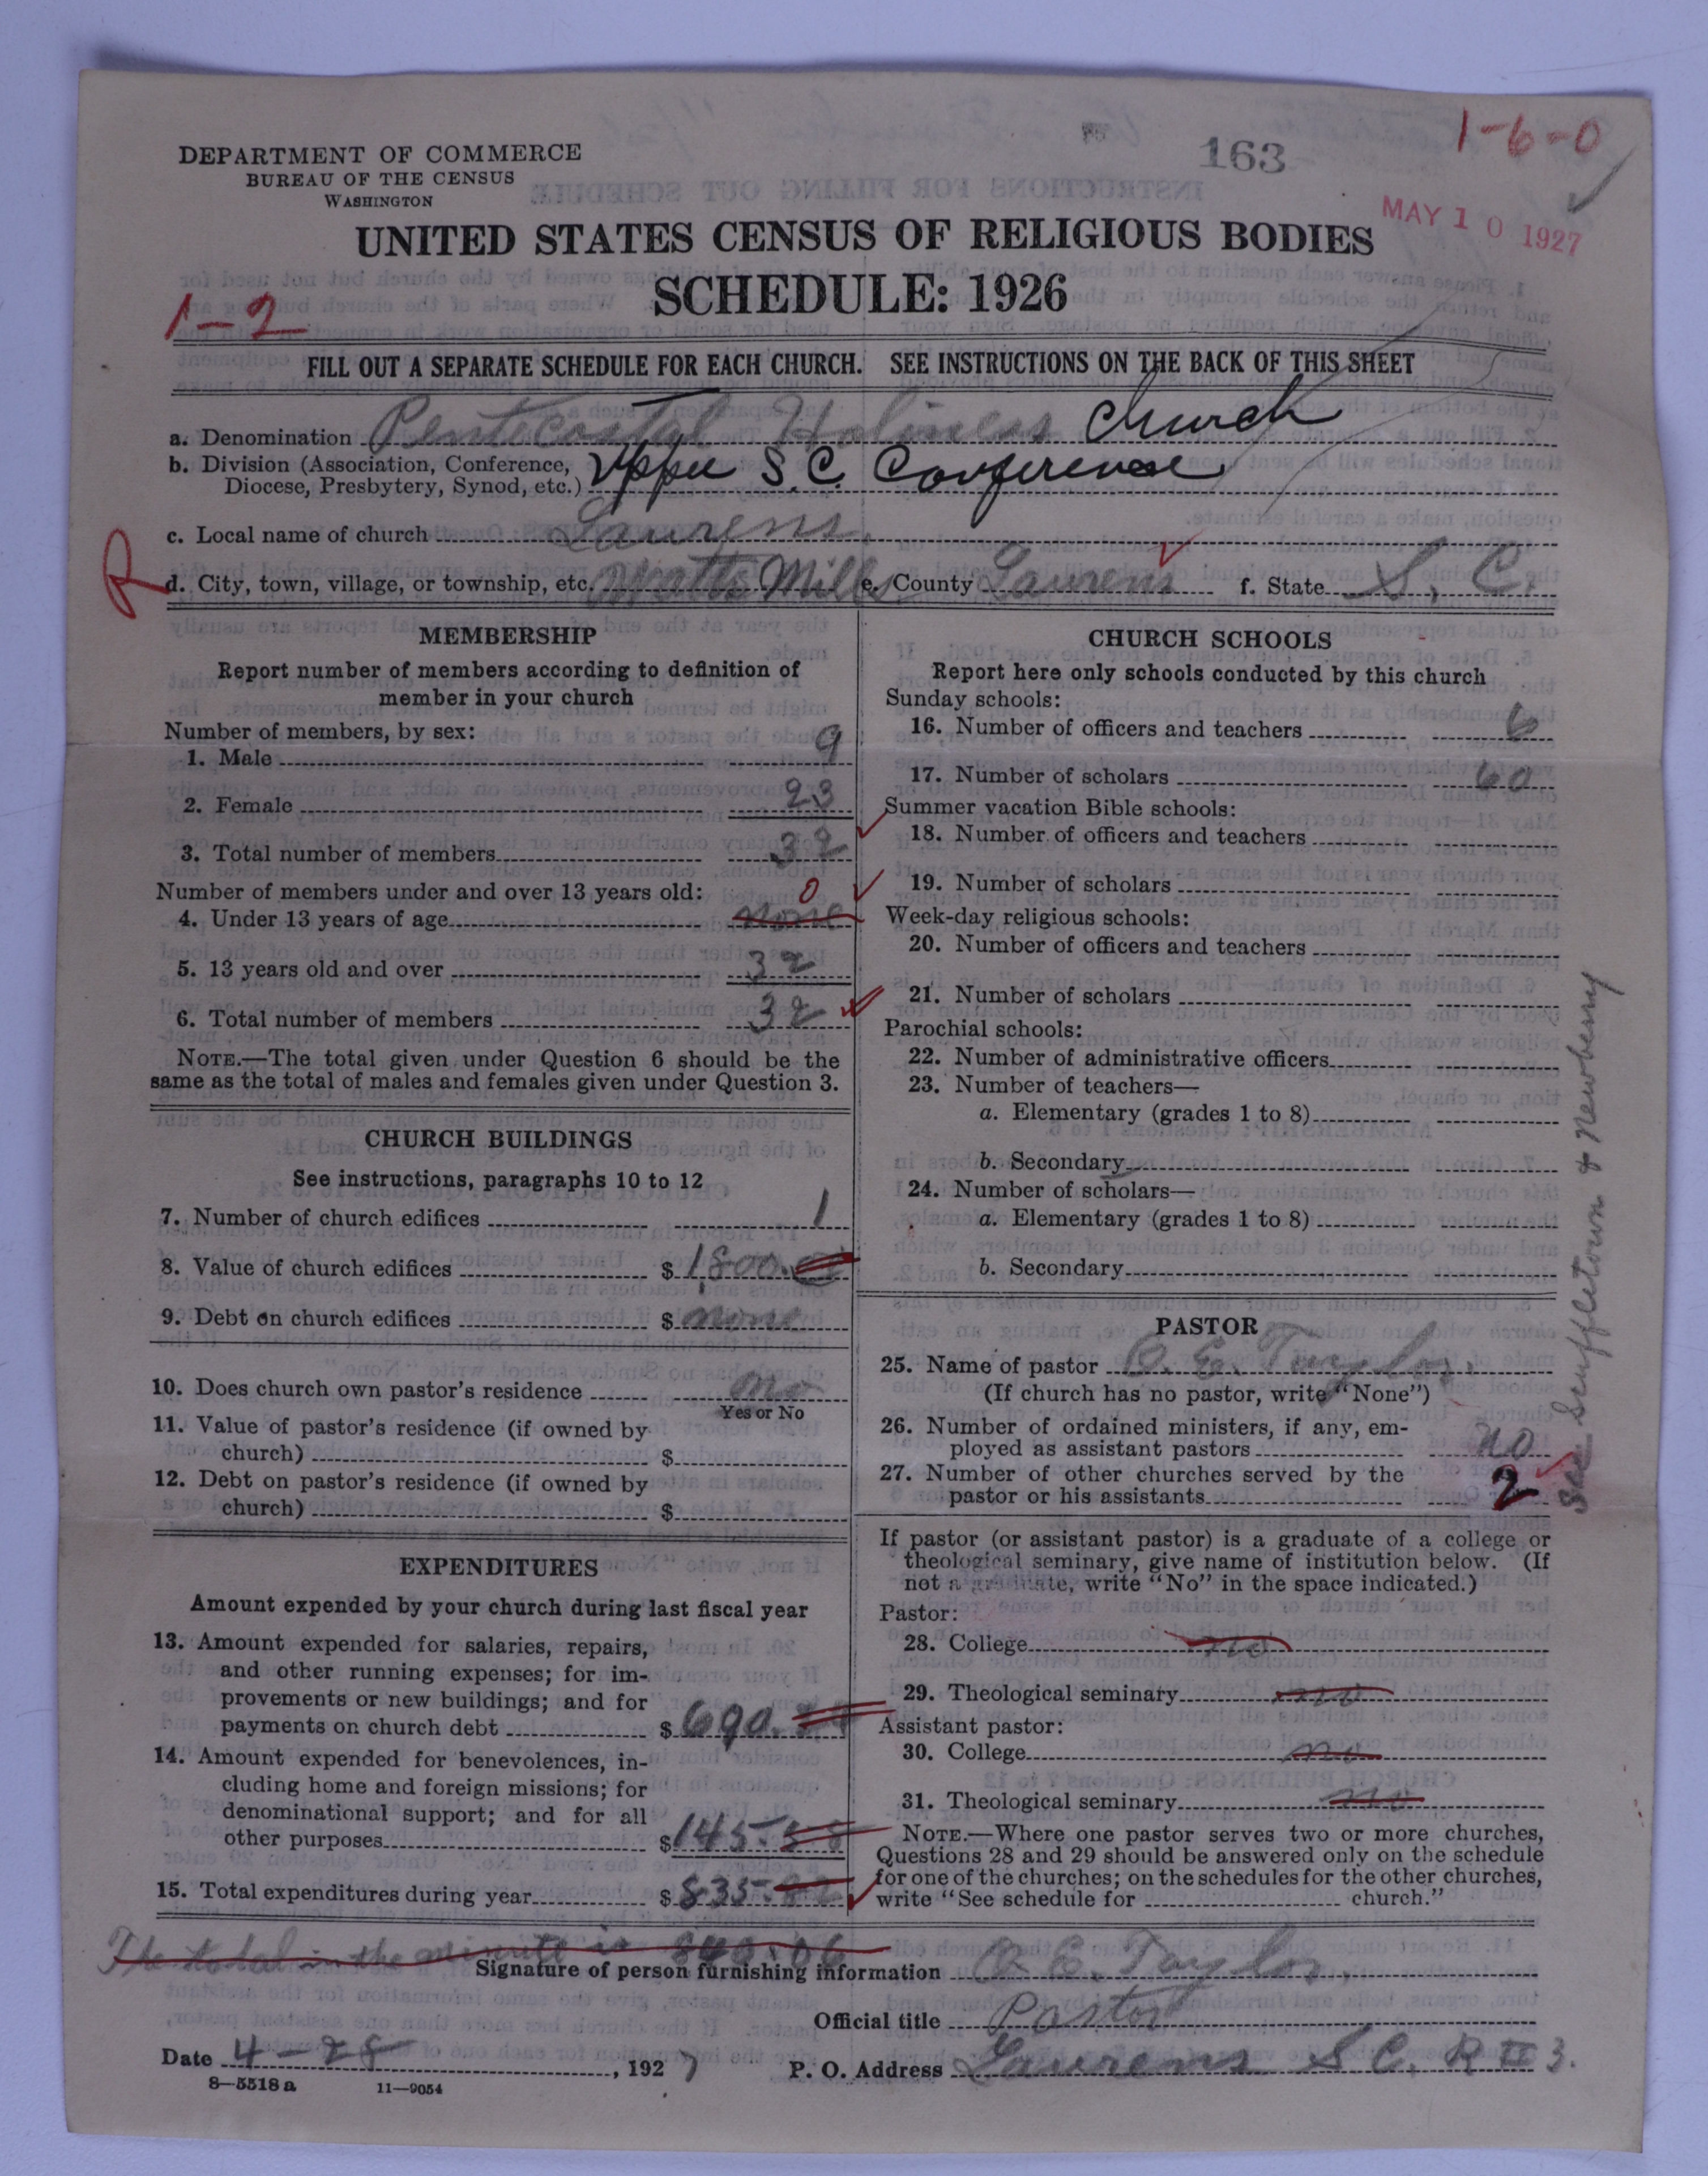 1-6-0
163
DEPARTMENT OF COMMERCE
BUREAU OF THE CENSUS
WASHINGTON
MAY 10 1927
UNITED STATES CENSUS OF RELIGIOUS BODIES
SCHEDULE: 1926
1-2
FILL OUT A SEPARATE SCHEDULE FOR EACH CHURCH. SEE INSTRUCTIONS ON THE BACK OF THIS SHEET
a. Denomination Pentecostal Holiness Church
b. Division (Association, Conference, Diocese, Presbytery, Synod, etc.) Upper S.C. Conference
c. Local name of church Laurens.
R
d. City, town, village, or township, etc. Watts Mills e. County Laurens f. State S. C.
MEMBERSHIP
Report number of members according to definition of
member in your church
Number of members, by sex:
1. Male 9
2. Female 23
3. Total number of members 32
Number of members under and over 13 years old:
0
4. Under 13 years of age none
5. 13 years old and over 32
6. Total number of members 32
NOTE.—The total given under Question 6 should be the
same as the total of males and females given under Question 3.
CHURCH BUILDINGS
See instructions, paragraphs 10 to 12
7. Number of church edifices 1
8. Value of church edifices $ 1,800.
9. Debt on church edifices $ none
10. Does church own pastor's residence no
Yes or No
11. Value of pastor's residence (if owned by
church) $
12. Debt on pastor's residence (if owned by
church) $
EXPENDITURES
Amount expended by your church during last fiscal year
13. Amount expended for salaries, repairs,
and other running expenses; for im-
provements or new buildings; and for
payments on church debt $ 690.
14. Amount expended for benevolences, in-
cluding home and foreign missions; for
denominational support; and for all
other purposes $ 145.58
15. Total expenditures during year $ 835.82
The total in the minute is 840.06
CHURCH SCHOOLS
Report here only schools conducted by this church
Sunday schools:
16. Number of officers and teachers 6
17. Number of scholars 60
Summer vacation Bible schools:
18. Number of officers and teachers
19. Number of scholars
Week-day religious schools:
20. Number of officers and teachers
21. Number of scholars
Parochial schools:
22. Number of administrative officers
23. Number of teachers—
a. Elementary (grades 1 to 8)
b. Secondary
24. Number of scholars—
a. Elementary (grades 1 to 8)
b. Secondary
PASTOR
25. Name of pastor O. E. Taylor.
(If church has no pastor, write "None")
26. Number of ordained ministers, if any, em-
ployed as assistant pastors no
27. Number of other churches served by the
pastor or his assistants 2
See Scuffletown & Newberry
If pastor (or assistant pastor) is a graduate of a college or
theological seminary, give name of institution below. (If
not a graduate, write "No" in the space indicated.)
Pastor:
28. College no
29. Theological seminary no
Assistant pastor:
30. College no
31. Theological seminary no
NOTE.—Where one pastor serves two or more churches,
Questions 28 and 29 should be answered only on the schedule
for one of the churches; on the schedules for the other churches,
write "See schedule for church."
Signature of person furnishing information O. E. Taylor.
Official title Pastor
Date 4-28, 1927 P. O. Address Laurens S C. R # 3.
8—5518a 11—9054